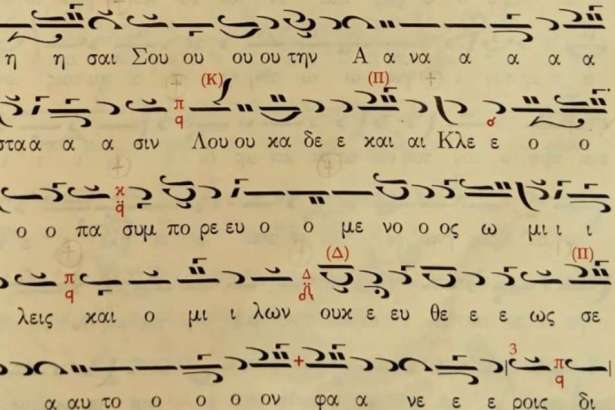 η η σαι Σου ου ου ου την Α α να α α α α
(Κ) (Π)
σταα α α α σιν Λου ου κα δε ε και αι Κλε ε ο ο
ο ο πα συμ πο ρε ευ ο ο με νο ο ος ω μι ι ι
(Δ) (Π)
λεις και ο μι ι λων ουκ ε ευ θε ε ε ως σε
α αυ το ο ο ο ον φα α νε ε ε ροις δι